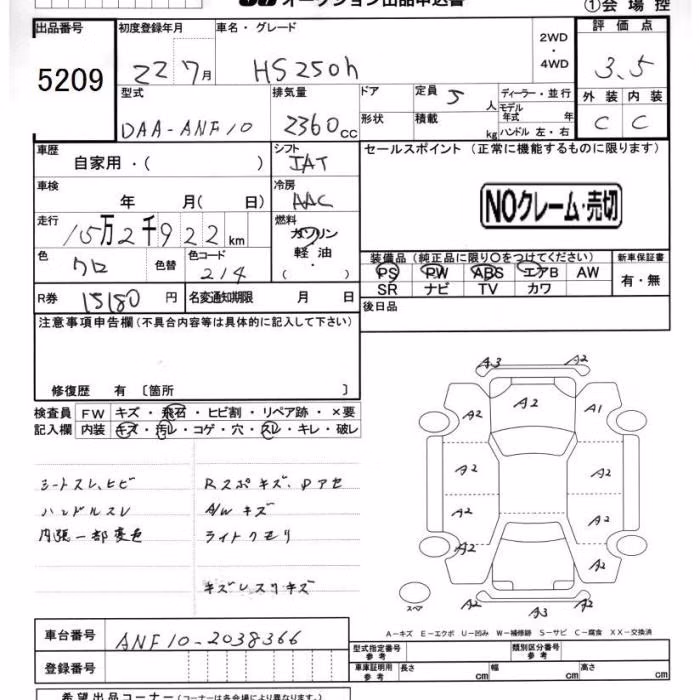 オークション出品申込書
①会場控
出品番号 初度登録年月 車名・グレード 評価点
5209 22 7月 HS250h 2WD・4WD 3.5
型式 排気量 ドア 定員 5人 ディーラー・並行 外装 内装
DAA-ANF10 2360cc 形状 積載 kg モデル年式 年 ハンドル 左・右 C C
車歴 シフト セールスポイント (正常に機能するものに限ります)
自家用・( ) IAT
車検 冷房
年 月( 日) AAC NOクレーム・売切
走行 燃料
15万2千922km ガソリン
軽油
・
色 色替 色コード 装備品 (純正品に限り○をつけてください) 新車保証書
クロ 214 PS PW ABS エアB AW 有・無
SR ナビ TV カワ
R券 15180円 名変通知期限 月 日 後日品
注意事項申告欄 (不具合内容等は具体的に記入して下さい)
修復歴 有 〔箇所 〕
検査員 FW キズ・飛石・ヒビ割・リペア跡・×要
記入欄 内装 キズ・汚レ・コゲ・穴・スレ・キレ・破レ
シートスレ、ヒビ Rスポキズ、Pアセ
ハンドルスレ A/Wキズ
内張一部変色 ライトクモリ
キズレスリキズ
A3 A2
A2 A2 A1
A2 A2
A2 A2
A2 A2
スペア A2 A3 A2
A-キズ E-エクボ U-凹み W-補修跡 S-サビ C-腐食 XX-交換済
車台番号 ANF10-2038366
型式指定番号 参考 類別区分番号 参考
登録番号 車庫証明用 参考 長さ cm 幅 cm 高さ cm
希望出品コーナー (コーナーは各会場により異なります。)